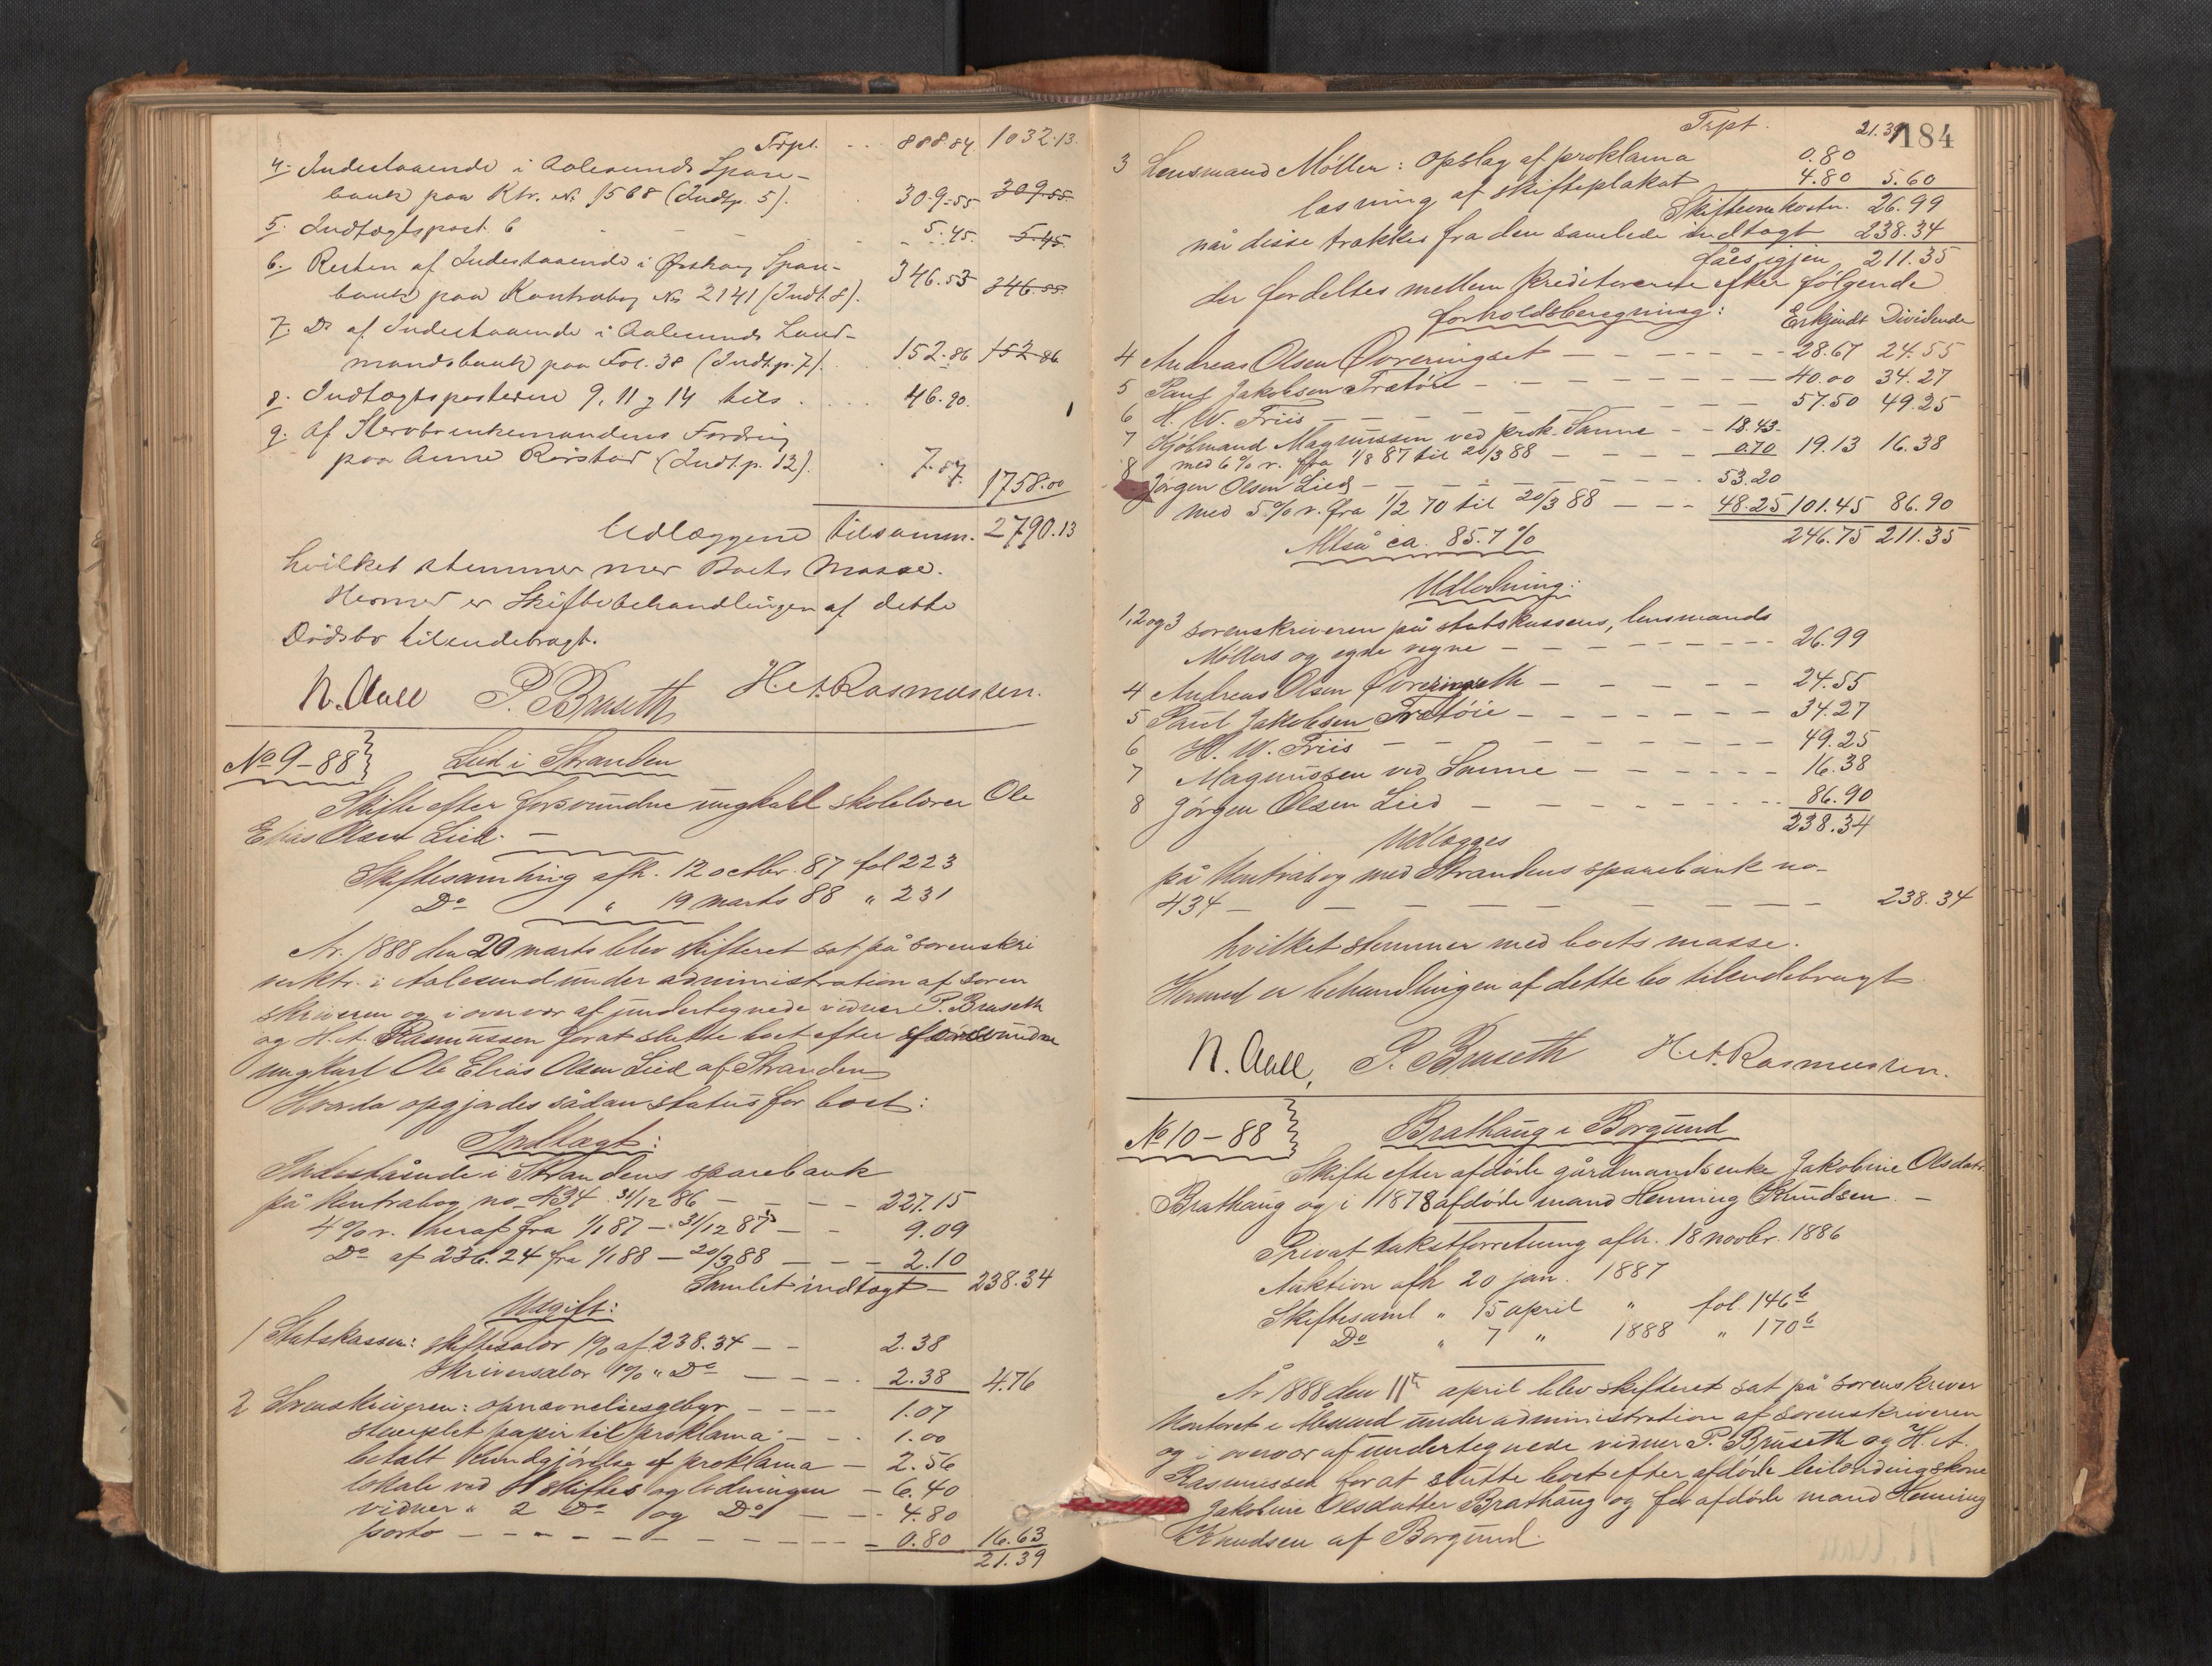 Trpt. 888.84. 1032.13.
4. Indestaaende i Aalesunds Spare-
bank paa Ktr. No. 1568 (Indtp. 5). 309.55 309.55
5. Indtægtspost 6 5.45. 5.45.
6. Resten af Indestaaende i Ørskog Spare-
bank paa Kontrabog No 2141 (Indt. 8). 346.53 346.53
7. Do af Indestaaende i Aalesunds Land-
mandsbank paa Fol. 38 (Indtp. 7). 152.86 152.86
8. Indtægtsposterne 9, 11 og 14 tils. 46.90.
9. Af Stervboenkemandens Fordring
paa Anne Rørstad (Indt.p. 12). 7.87. 1758.00
Udlæggene tilsamm. 2790.13
hvilket stemmer med Boets Masse.
Hermed er Skiftebehandlingen af dette
Dødsbo tilendebragt.
N. Aall P. Bruseth H. A. Rasmussen.
No 9-88 Lied i Stranden
Skifte efter forsvundne ungkarl skolelærer Ole
Elias Olsen Lied. —
Skiftesamling afh. 12 octbr. 87 fol 223
Do " 19 marts 88 " 231
År 1888 den 20 marts blev skifteret sat på sorenskri
verktr. i Aalesund under administration af soren
skriveren og i overvær af undertegnede vidner P. Bruseth
og H. A. Rasmussen forat slutte boet efter forsvundne
ungkarl Ole Elias Olsen Lied af Stranden
Hvorda opgjordes sådan status for boet:
Indtægt:
Indestående i Strandens sparebank
på Kontrabog no 434 31/12 86 — — — 227.15
4 % r. heraf fra 1/1 87 — 31/12 87 — — 9.09
Do af 236.24 fra 1/1 88 — 20/3 88 — — — 2.10
Samlet indtægt — 238.34
Udgift:
1 Statskassen: skiftesalær 1% af 238.34 — — 2.38
Skriversalær 1% " Do — — — — 2.38 4.76
2 Sorenskriveren: opnævnelsesgebyr — — — — 1.07
stemplet papir til proklama — — 1.00
betalt kundgjørelse af proklama — 2.56
lokale ved skiftes og lodningen — 6.40
vidner " 2 Do og Do — — — 4.80
porto — — — — — — — — — 0.80 16.63
21.39
184
Trpt. 21.39
3 Lensmand Møller: opslag af proklama 0.80
læsning af skifteplakat 4.80 5.60
Skifteomkostn. 26.99
når disse trækkes fra den samlede indtægt 238.34
fåes igjen 211.35
der fordeltes mellem kreditorerne efter følgende
forholdsberegning: Erkjendt Dividende
4 Andreas Olsen Overingset — — — — — — 28.67 24.55
5 Paul Jakobsen Fratøie — — — — — — — 40.00 34.27
6 H. W. Friis — — — — — — — — 57.50 49.25
7 Kjøbmand Magnussen ved prok. Sanne — — 18.43
med 6% r. fra 1/8 87 til 20/3 88 — — — — 0.70 19.13 16.38
8 Jørgen Olsen Lied — — — — — — — 53.20
med 5% r. fra 1/2 70 til 20/3 88 — — — 48.25 101.45 86.90
Altså ca. 85.7 % 246.75 211.35
Udlodning:
1, 2 og 3 sorenskriveren på statskassens, lensmands
Møllers og egne vegne — — — — — — — 26.99
4 Andreas Olsen Overingseth — — — — — 24.55
5 Paul Jakobsen Fratøie — — — — — — — 34.27
6 H. W. Friis — — — — — — — — 49.25
7 Magnussen ved Sanne — — — — — — 16.38
8 Jørgen Olsen Lied — — — — — — — 86.90
238.34
Udlægges
på Kontrabog med Strandens sparebank no-
434 — — — — — — — — 238.34
hvilket stemmer med boets masse.
Hermed er behandlingen af dette bo tilendebragt.
N. Aall, P. Bruseth H. A. Rasmussen.
No 10-88 Brathaug i Borgund
Skifte efter afdøde gårdmandsenke Jakobine Olsdatr.
Brathaug og i 1878 afdøde mand Henning Knudsen. —
Privat takstforretning afh. 18 novbr. 1886
Auktion afh 20 jan. 1887
Skiftesaml " 15 april " fol. 146b
Do " 7 " 1888 " 170b
År 1888 den 11te april blev skifteret sat på sorenskriver
kontoret i Ålesund under administration af sorenskriveren
og i overvær af undertegnede vidner P. Bruseth og H. A.
Rasmussen forat slutte boet efter afdøde leilændingskone
Jakobine Olsdatter Brathaug og før afdøde mand Henning
Knudsen af Borgund.